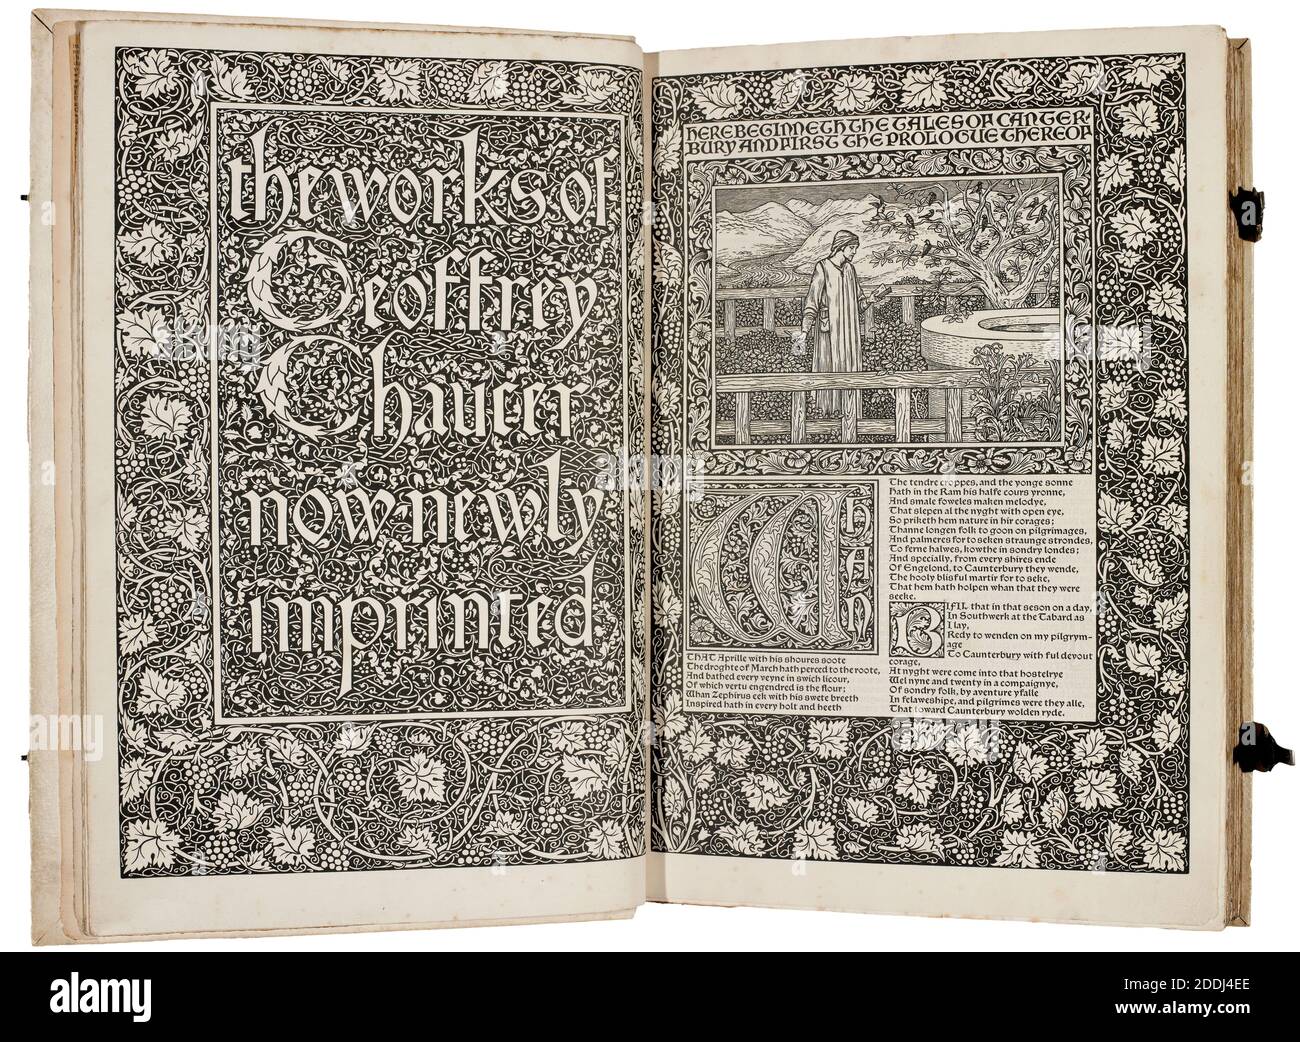 the works of
Geoffrey
Chaucer
now newly
imprinted
HERE BEGINNETH THE TALES OF CANTER-
BURY AND FIRST THE PROLOGUE THEREOF
WHAN
THAT Aprille with his shoures soote
The droghte of March hath perced to the roote,
And bathed every veyne in swich licour,
Of which vertu engendred is the flour;
Whan Zephirus eek with his swete breeth
Inspired hath in every holt and heeth
The tendre croppes, and the yonge sonne
Hath in the Ram his halfe cours yronne,
And smale foweles maken melodye,
That slepen al the nyght with open eye,
So priketh hem nature in hir corages;
Thanne longen folk to goon on pilgrimages,
And palmeres for to seken straunge strondes,
To ferne halwes, kowthe in sondry londes;
And specially, from every shires ende
Of Engelond, to Caunterbury they wende,
The hooly blisful martir for to seke,
That hem hath holpen whan that they were
seeke.
BIFIL that in that seson on a day,
In Southwerk at the Tabard as
I lay,
Redy to wenden on my pilgrym-
age
To Caunterbury with ful devout
corage,
At nyght were come into that hostelrye
Wel nyne and twenty in a compaignye,
Of sondry folk, by aventure yfalle
In felaweshipe, and pilgrimes were they alle,
That toward Caunterbury wolden ryde.
alamy
Image ID: 2DDJ4EE
www.alamy.com